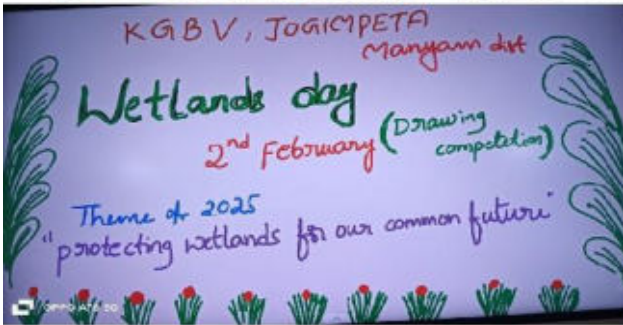 KGBV, JOGIMPETA
Manyam dist
Wetlands day
2nd February (Drawing competetion)
Theme of 2025
"protecting wetlands for our common future"
OPPO A78 5G